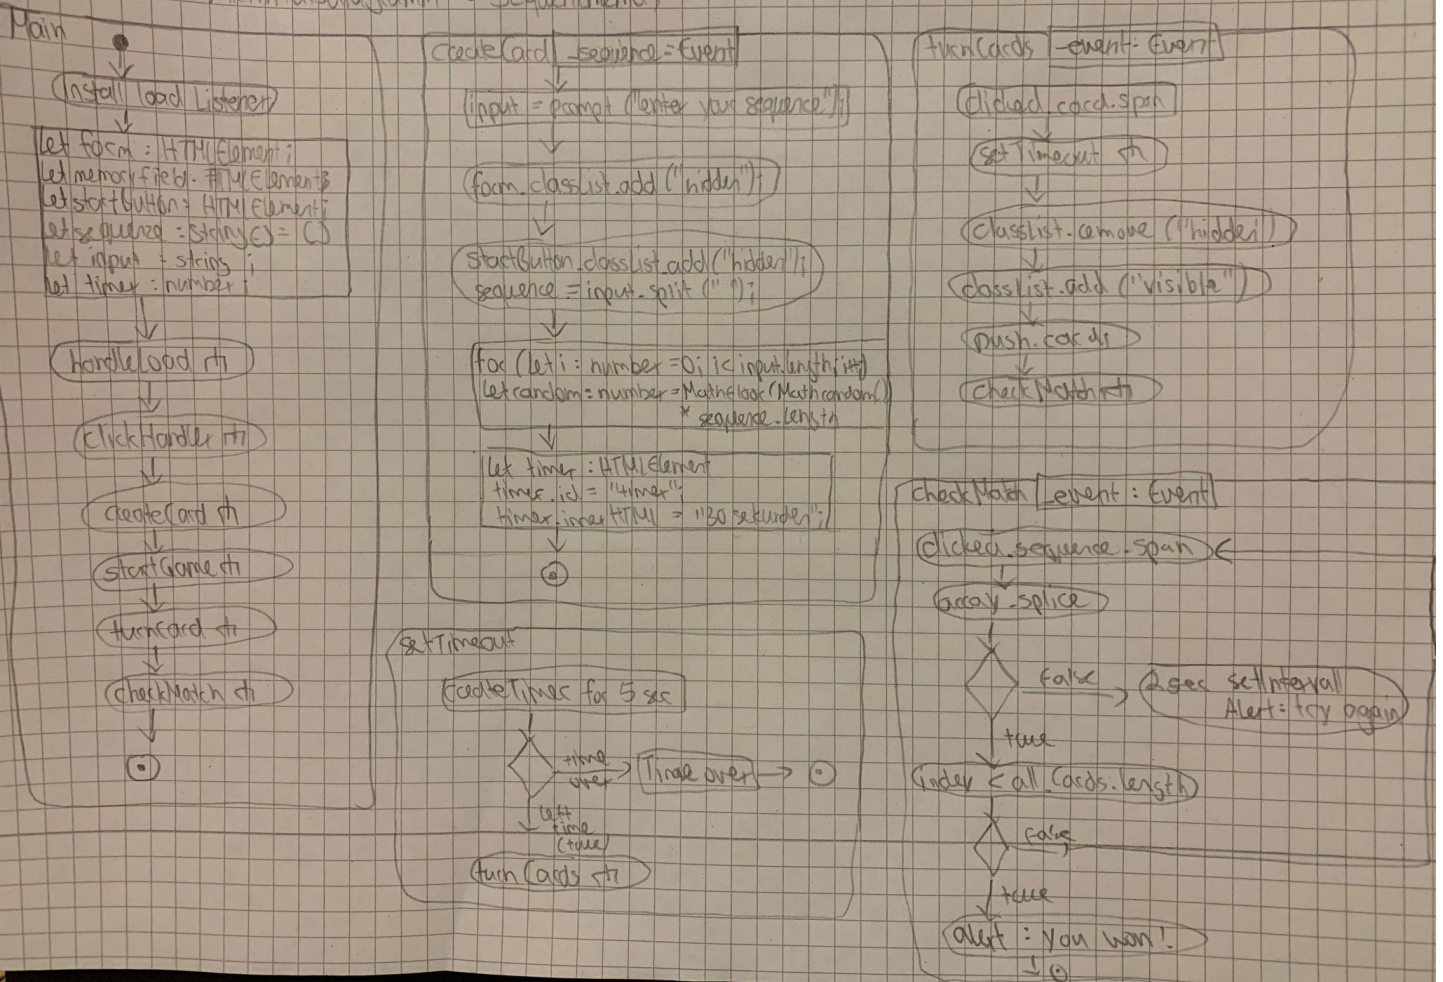 Main
Install load Listener
let form : HTMLElement;
let memoryfield : HTMLElement;
let startbutton : HTMLElement;
let sequence : string() = ()
let input : string ;
let timer : number ;
handleLoad
clickHandler
createCard
startGame
turnCard
checkMatch
createCard -sequence = Event
input = prompt ("enter your sequence");
form.classlist.add ("hidden");
startButton.classlist.add("hidden");
sequence = input.split (" ");
for (let i : number = 0; i < input.length; i++)
let random = number = Mathfloor(Mathrandom()
* sequence.length
let timer : HTMLElement
timer.id = "timer";
timer.innerHTML = "30 sekunden";
setTimeout
createTimer for 5 sec
time
over
Time over
left
time
(true)
turnCards
turnCards -event: Event
clicked card.span
setTimeout
classlist.remove ("hidden")
classlist.add ("visible")
push.cards
checkMatch
checkMatch event : Event
clicked.sequence.span
array.splice
false
2sec setIntervall
Alert: try again
true
index < all.Cards.length
false
true
alert : you won!